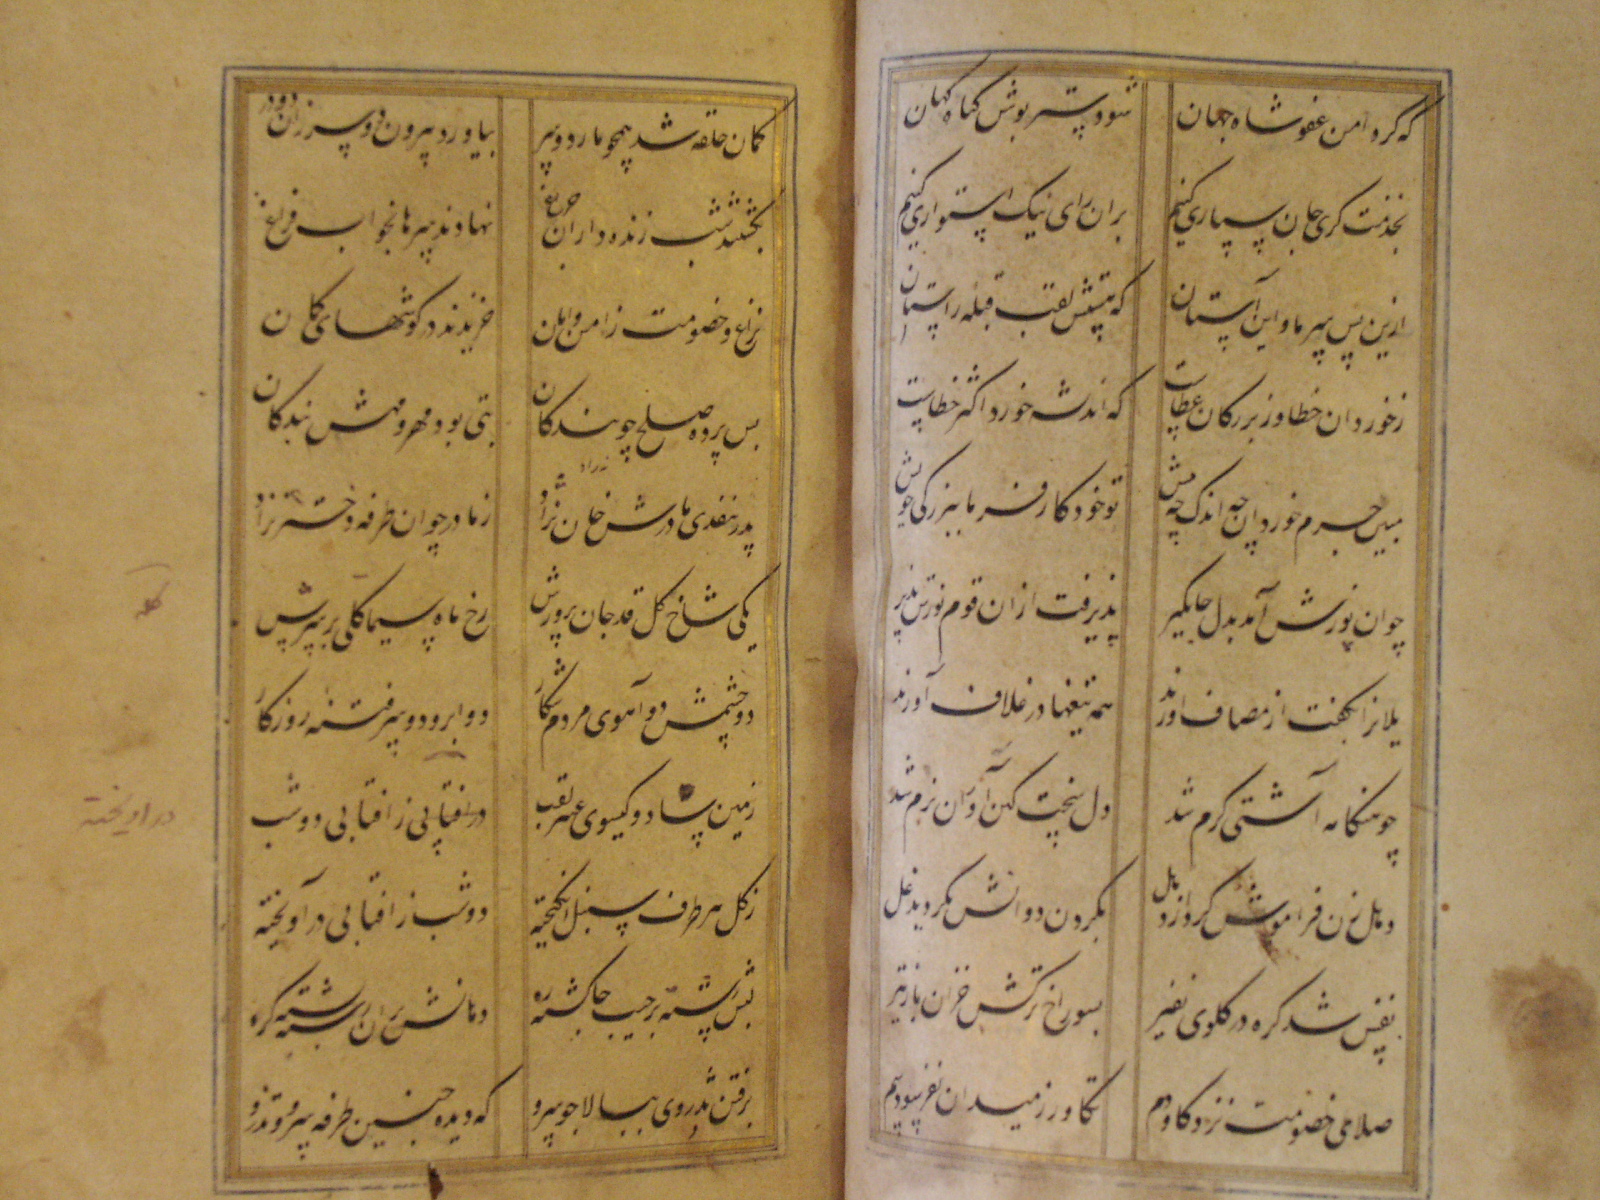 که کرد امن عفو شاه جهان شود پتسر پوش کناه کهان
بخدمت کری جان سپاری کنیم بران رای نیک استواری کنیم
ازین پس سر ما و این آستان که پیشش لقب قبله راستان
ز خوردان خطا وز بزرکان عطاست که اندیشه خورد اکثر خطاست
مبین جرم خوردان چه اندک چه بیش تو خود کار فرما بزرکی خویش
چو آن پوزش آمد بدل جایکیر پذیرفت ازان قوم پوزش پذیر
یلانرا بکفت از مصاف آورند همه تیغها در غلاف آورند
چو هنکامه آشتی کرم شد دل سخت کین آوران نرم شد
دهل زن فراموش کرد از دهل بکردن دوانش بکردید غل
نفس شد کره در کلوی نفیر بسوراخ ترکش خزان مار تیر
صلای خصومت نزد کاودم تکاور ز میدان نفرسود سم
کمان حلقه شد همچو مار دو سر بیاورد بیرون دو سر زان دو در
بخفتند شب زنده داران نهادند سرها بخواب فراغ
نزاع و خصومت ز امن و امان خزیدند در کوشهای کمان
پس پرده صلح جویندکان بتی بود مهر و مهش بندکان
پدر نقدی مادرش خان نژاد ز مادر چو آن طرفه دختر نزاد
یکی شاخ کل قد جان پرورش رخ ماه سیما کلی بر سرش
دو چشمش دو آهوی مردم شکار دو ابرو دو سر فتنه روزکار
زمین سا دو کیسوی عنبر لقب در آفتابی ز آفتابی دو شب
ز کل هر طرف سنبل انکیخته دو شب از آفتابی در آویخته
لبش پسته برجیب جا کشته دهانش بران پسته کره
برفتن تذروی ببالا چو سرو که دیده چنین طرفه سرو و تذرو
در آویخته